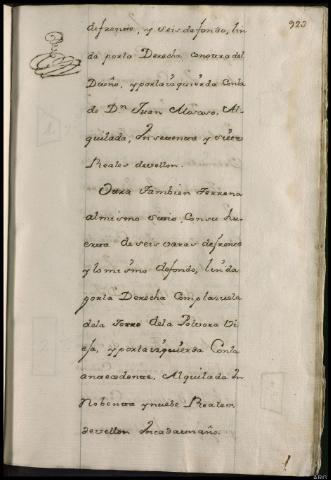 923
defrente, y seis de fondo, lin
da por la Derecha con otra del
Dueño, y por la izquierda Con la
de Dn Juan Alvaro, Al
quilada, In sesenta y siete
Reales de vellon.
Otra Tambien Terrena
al mismo sitio, Con su hu
erta de seis varas defrente
y lo mismo defondo, linda
por la Derecha Con plazuela
dela Torre dela Polvora Vi
eja, y por la izquierda Con la
anzecedente, Alquilada In
Nobenta y nuebe Reales
de vellon In cada un año.